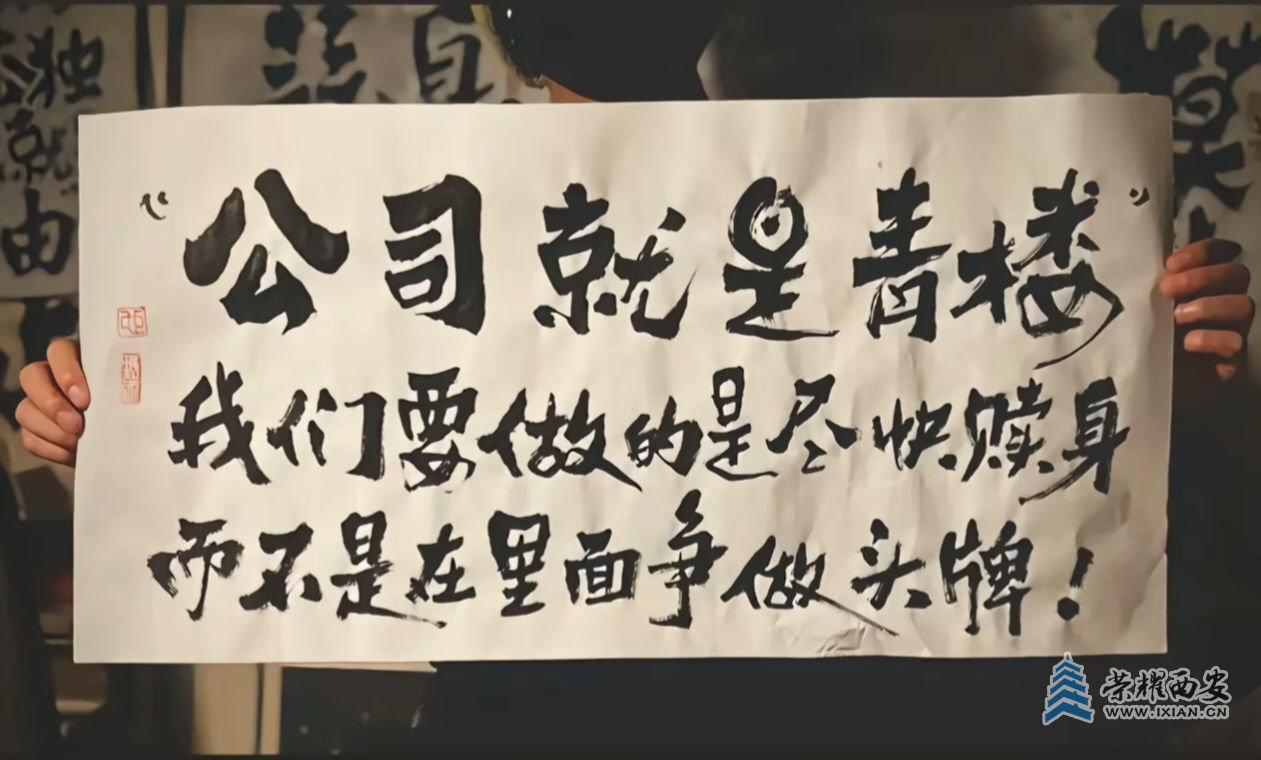 “公司就是青楼”
我们要做的是尽快赎身
而不是在里面争做头牌！
独
就
由
荣耀西安
WWW.IXIAN.CN